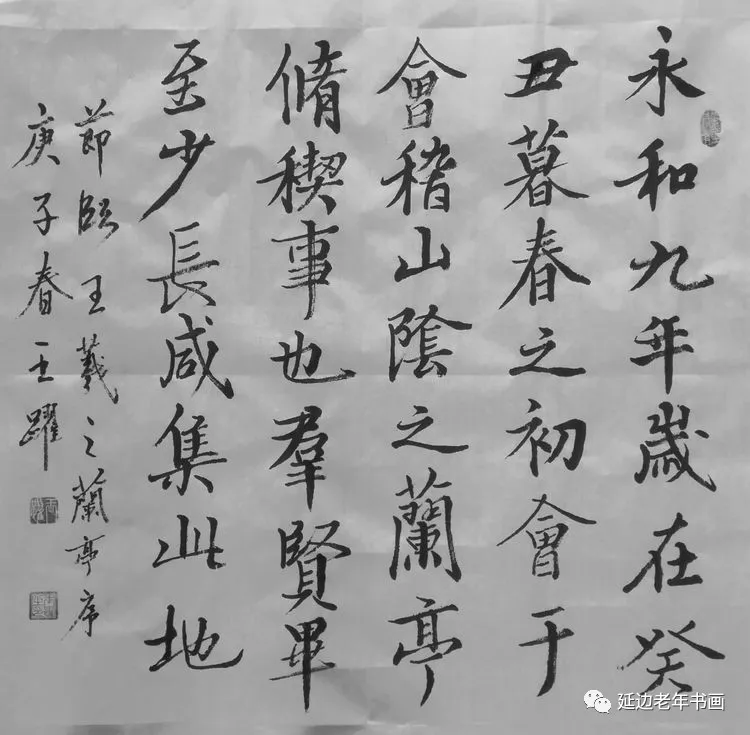 永和九年歲在癸
丑暮春之初會于
會稽山陰之蘭亭
脩稧事也羣賢畢
至少長咸集此地
節臨王羲之蘭亭序
庚子春王躍
延边老年书画